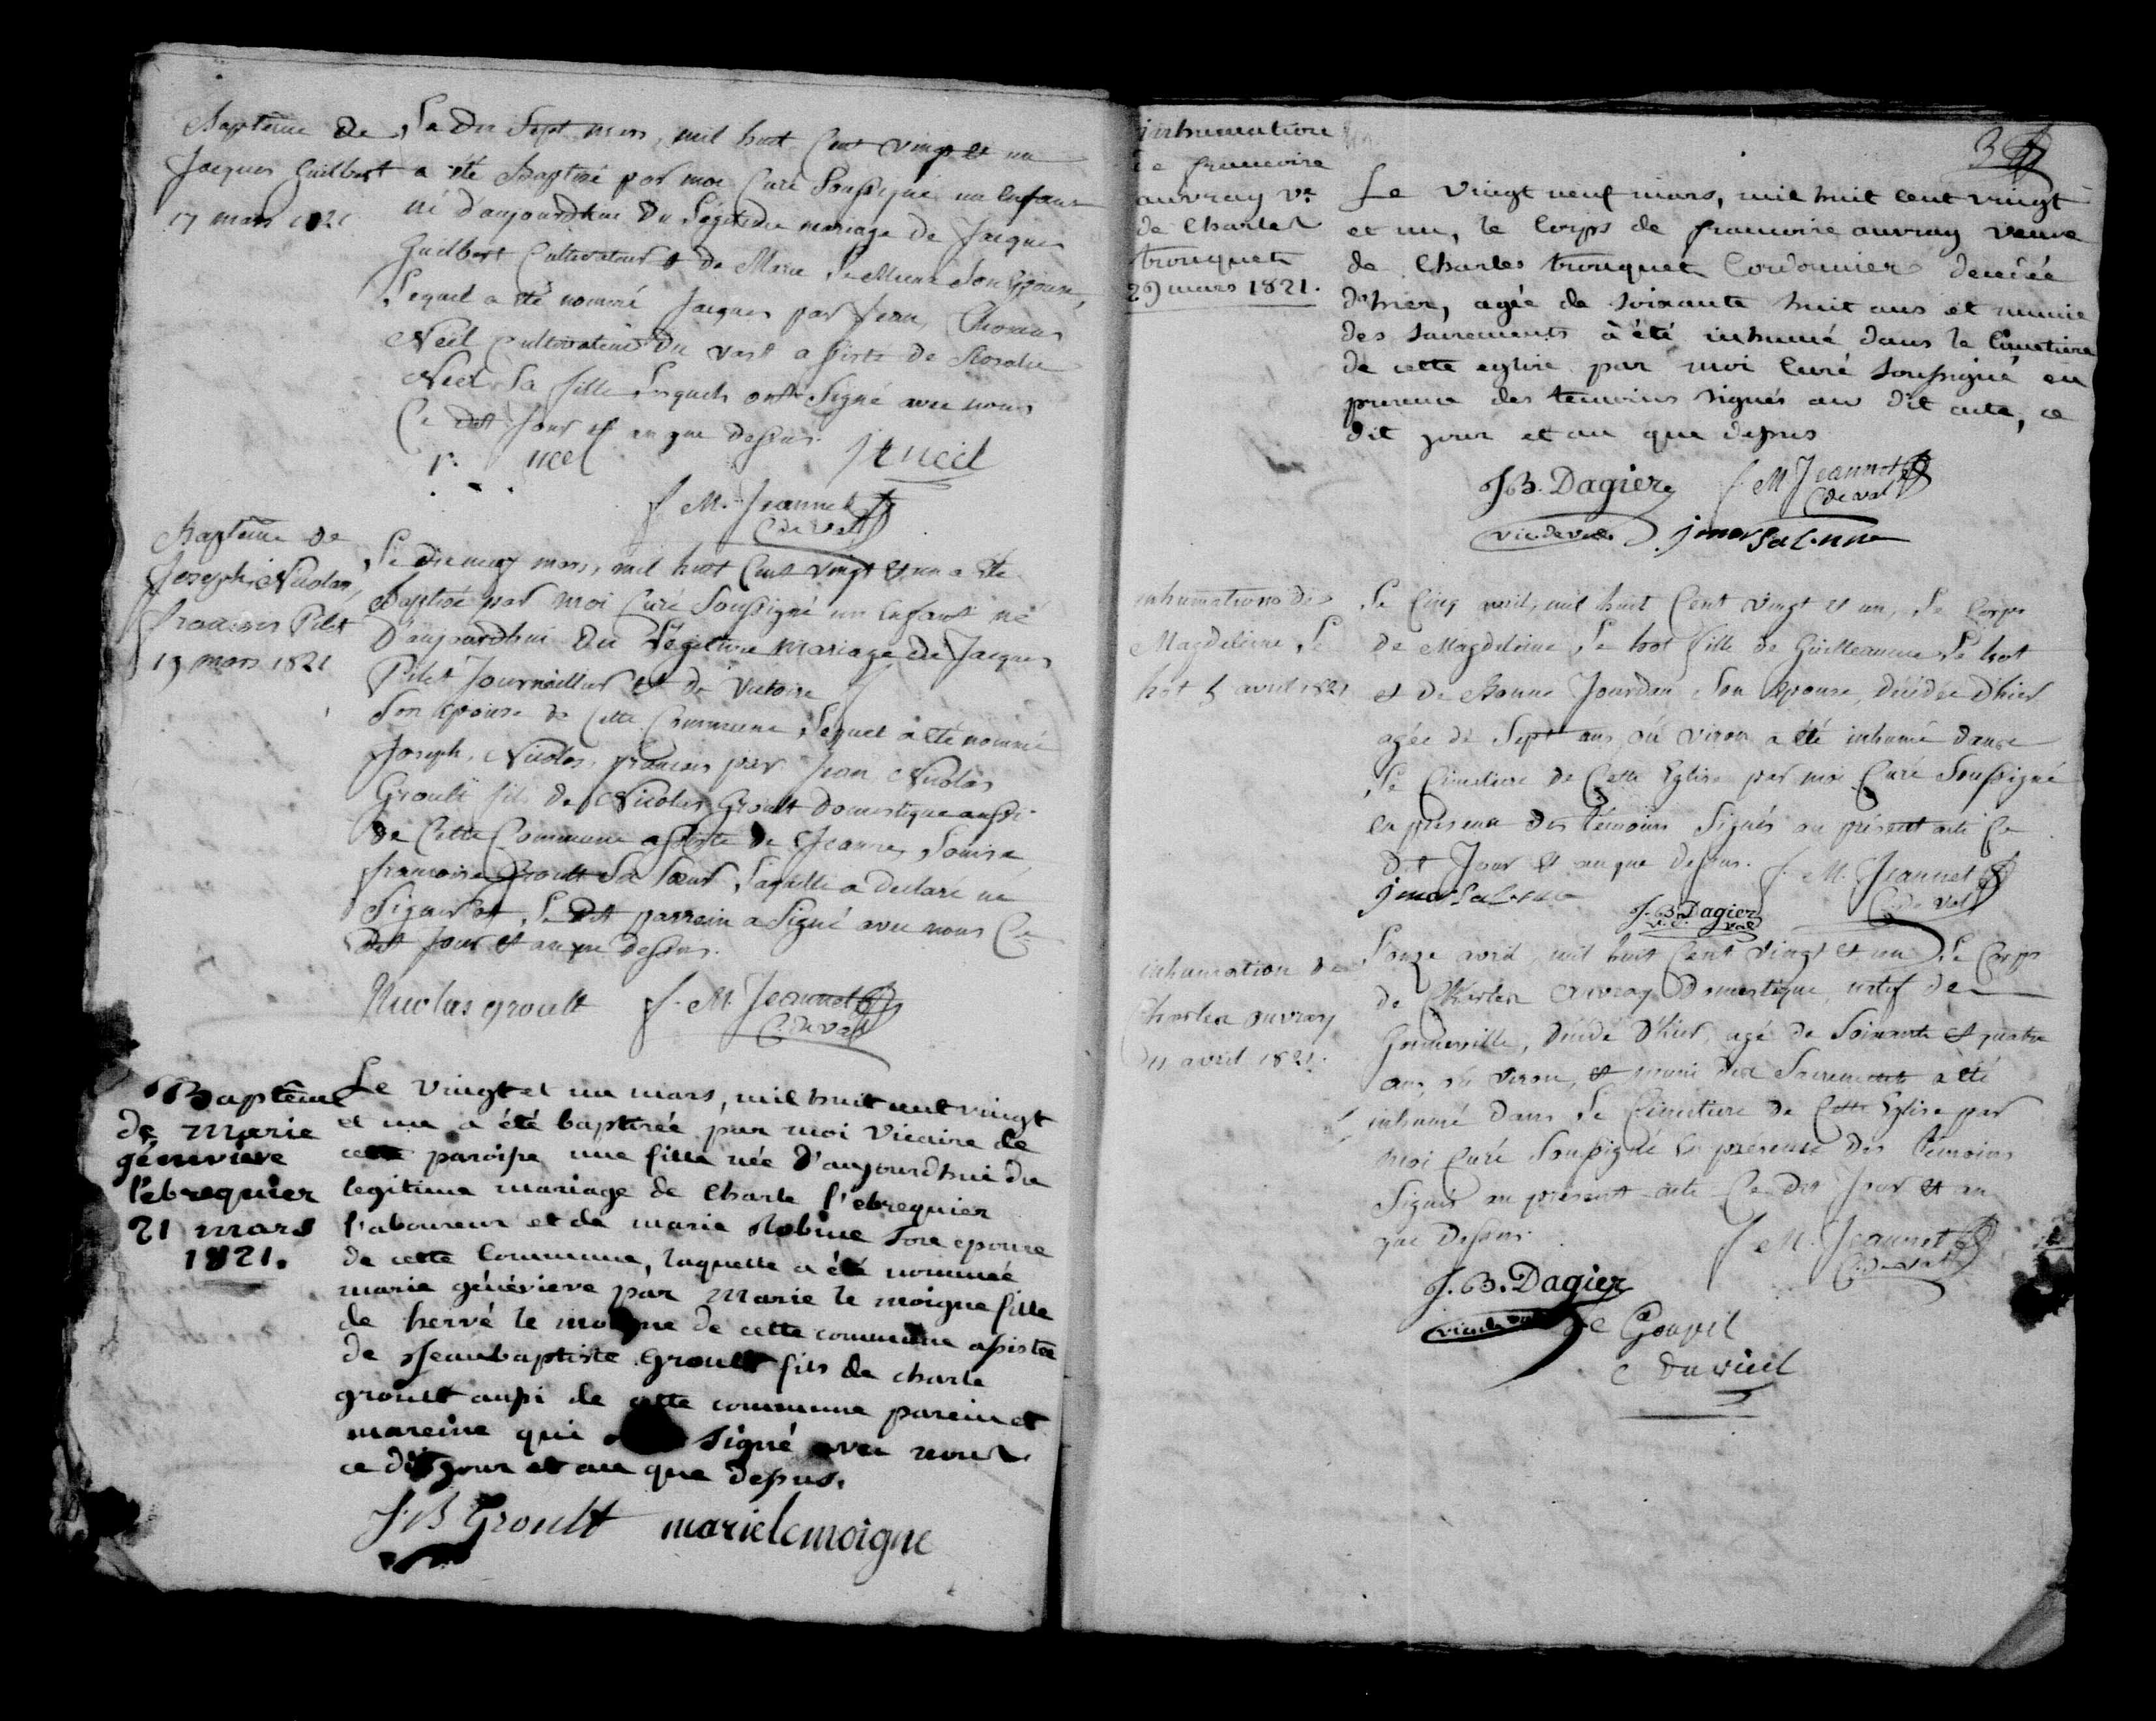 Baptême de
Jacques Guilbert
17 mars 1821
Le dix Sept mars, mil huit Cent vingt et un
a été Baptisé par moi Curé Soussigné un enfant
né d'aujourdhui du Légitime mariage de Jacques
Guilbert Cultivateur et de Marie Son Epouse,
Lequel a été nommé Jacques par Jean, Thomas
Néel Cultivateur du vast assisté de Rosalie
Néel Sa fille Lesquels ont Signé avec nous
Ce dit Jour et an que dessus.
r. néel
J t néel
f. M. Jeannet
C de val
Baptême de
Joseph, Nicolas,
francois Pilet
19 mars 1821
Le dix neuf mars, mil huit Cent vingt et un a été
Baptisé par moi Curé Soussigné un enfant né
D'aujourdhui du Légitime mariage de Jacques
Pilet Journaillier et de Victoire
Son épouse de Cette Commune, Lequel a été nommé
Joseph, Nicolas, francois par Jean Nicolas
Groult fils de Nicolas Groult domestique aussi
de Cette Commune assisté de Jeanne, Louise,
francoise Groult Sa Soeur, Laquelle a déclaré ne
Signer et Le dit parrein a Signé avec nous Ce
dit Jour et an que dessus.
Nicolas groult f. M. Jeannet
C de val
Baptême
de Marie
géneviève
l'ebrequier
21 mars
1821.
Le vingt et un mars, mil huit cent vingt
et un a été baptisée par moi Vicaire de
cette paroisse une fille née d'aujourdhui du
legitime mariage de Charle l'ebrequier
l'aboureur et de marie Robine son epouse
de cette Commune, laquelle a été nommée
marie généviève par Marie le moigne fille
de hervé le moigne de cette commune assistée
de Jeanbaptiste Groult fils de charle
groult aussi de cette commune parein et
mareine qui signé avec nous
ce dit jour et an que dessus.
J. B Groult marie lemoigne
3
inhumation
de francoise
auvray Ve
de Charles
trouquet
29 mars 1821.
Le vingt neuf mars, mil huit cent vingt
et un, le Corps de francoise auvray veuve
de Charles trouquet Cordonnier decedée
d'hier, agée de soixante huit ans et munie
des sacrements à été inhumé dans le Cimetiere
de cette eglise par moi Curé soussigné en
presence des temoins signés au dit acte, ce
dit jour et an que dessus
J. B. Dagier f. M. Jeannet
C de val
vic. de val
inhumation de
Magdeleine, Le
hot 5 avril 1821
Le Cinq avril, mil huit Cent vingt et un, Le Corps
de Magdeleine Le hot fille de Guilleaume Le hot
et de Bonne Jourdan Son Epouse, décédée d'hier
agée de Sept ans ou viron a été inhumé dans
Le Cimetiere de Cette Eglise par moi Curé Soussigné
en présence des témoins Signés au présent acte Ce
dit Jour et an que dessus. f. M. Jeannet
C. de val
J. B. Dagier
v. d. val
inhumation de
Charles auvray
11 avril 1821.
L'onze avril, mil huit Cent vingt et un Le Corps
de Charles auvray Domestique, natif de
Gonneville, décédé d'hier, agé de Soixante et quatre
ans ou viron, et muni des Sacrements a été
inhumé dans Le Cimetiere de Cette Eglise par
moi Curé Soussigné en présence des témoins
Signés au présent acte Ce dit Jour et an
que Dessus.
f. M. Jeannet
C. de val
J. B. Dagier
vic de val
le Goupil
C duvieil